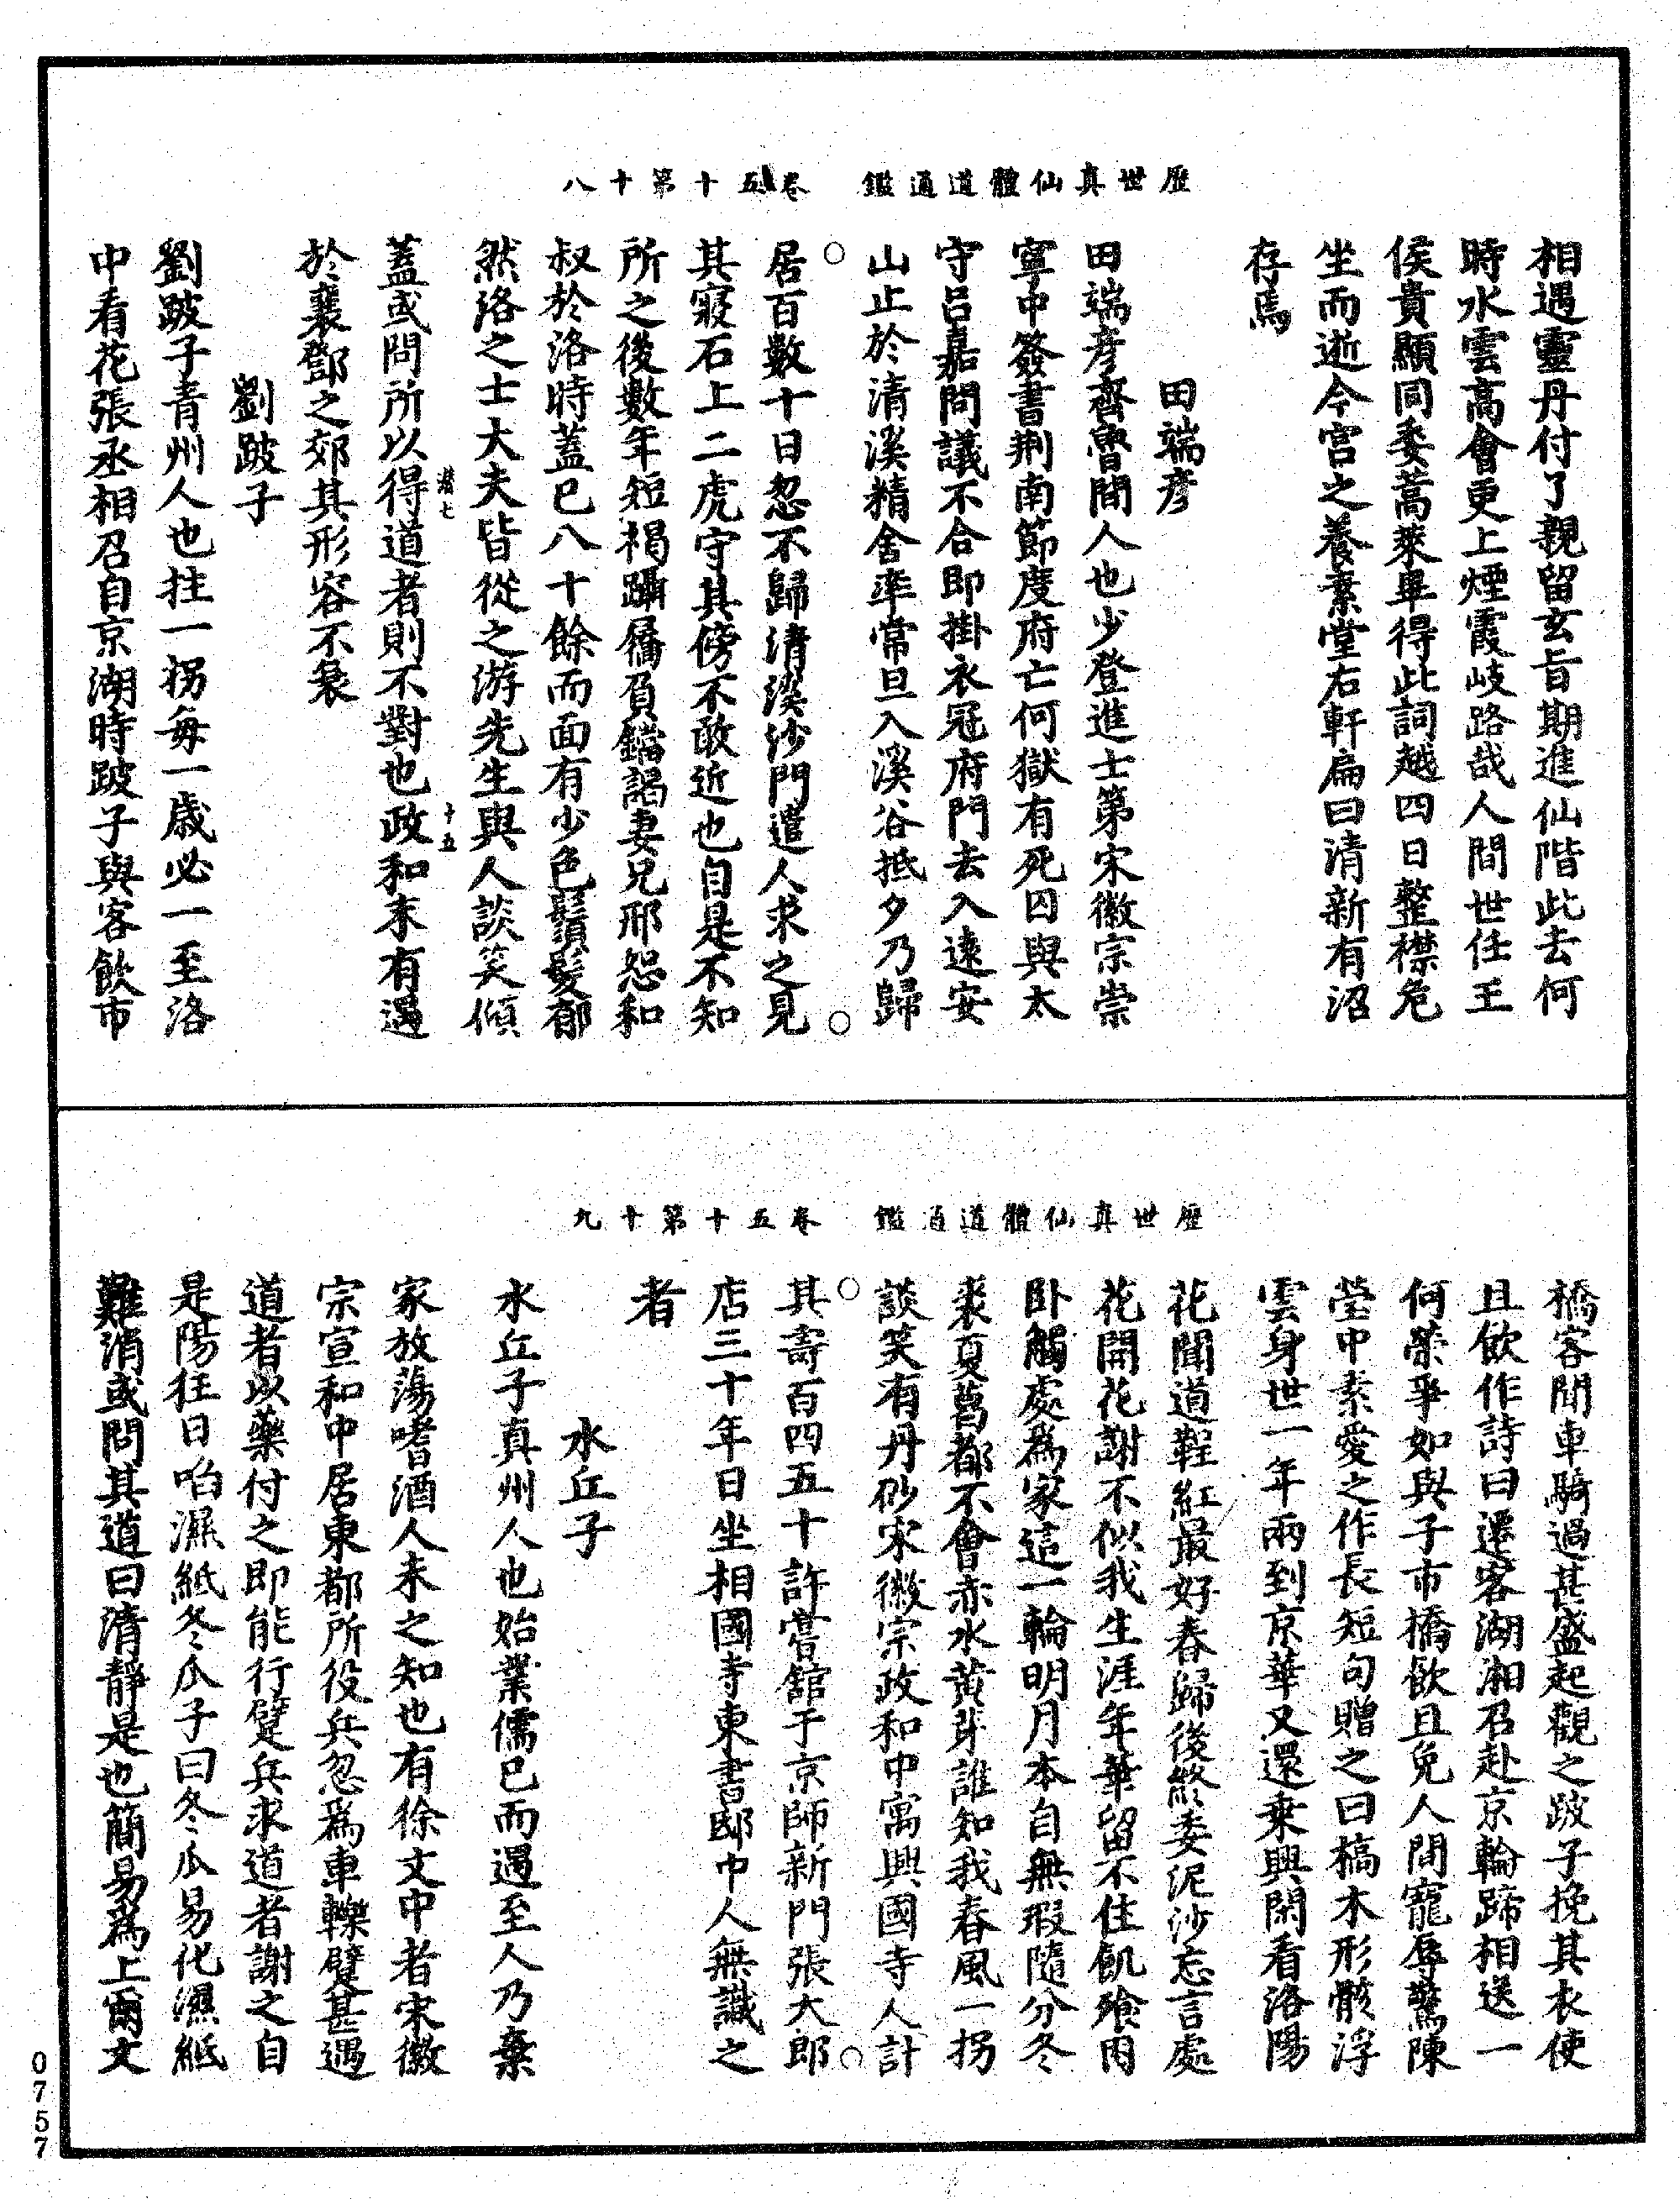 歷世真仙體道通鑑　卷五十第十八
相遇靈丹付了親留玄旨期進仙階此去何
時水雲高會更上煙霞岐路哉人間世任王
侯貴顯同委蒿萊畢得此詞越四日整襟危
坐而逝今宮之養素堂右軒扁曰清新有沼
存焉
田端彥
田端彥齊魯間人也少登進士第宋徽宗崇
寧中簽書荆南節度府亡何獄有死囚與太
守呂嘉問議不合即掛衣冠府門去入遠安
山止於清溪精舍率常旦入溪谷抵夕乃歸
居百數十日忽不歸清溪沙門遣人求之見
其寢石上二虎守其傍不敢近也自是不知
所之後數年短褐躡屩負鐺謁妻兄邢恕和
叔於洛時蓋已八十餘而面有少色鬚髮郁
然洛之士大夫皆從之游先生與人談笑傾
蓋或問所以得道者則不對也政和末有遇
於襄鄧之郊其形容不衰
劉跛子
劉跛子青州人也拄一拐每一歲必一至洛
中看花張丞相召自京湖時跛子與客飲市
十五
歷世真仙體道通鑑　卷五十第十九
橋客聞車騎過甚盛起觀之跛子挽其衣使
且飲作詩曰遷客湖湘召赴京輪蹄相送一
何榮爭如與子市橋飲且免人間寵辱驚陳
瑩中素愛之作長短句贈之曰槁木形骸浮
雲身世一年兩到京華又還乘興閑看洛陽
花聞道鞓紅最好春歸後終委泥沙忘言處
花開花謝不似我生涯年華留不住飢飧困
卧觸處為家這一輪明月本自無瑕隨分冬
裘夏葛都不會赤水黃芽誰知我春風一拐
談笑有丹砂宋徽宗政和中寓興國寺人計
其壽百四五十許嘗舘于京師新門張大郎
店三十年日坐相國寺東書邸中人無識之
者
水丘子
水丘子真州人也始業儒已而遇至人乃棄
家放蕩嗜酒人未之知也有徐文中者宋徽
宗宣和中居東都所役兵忽為車轢躄甚遇
道者以藥付之即能行躄兵求道者謝之自
是陽狂日啗濕紙冬瓜子曰冬瓜易化濕紙
難消或問其道曰清靜是也簡易為上爾文
0757